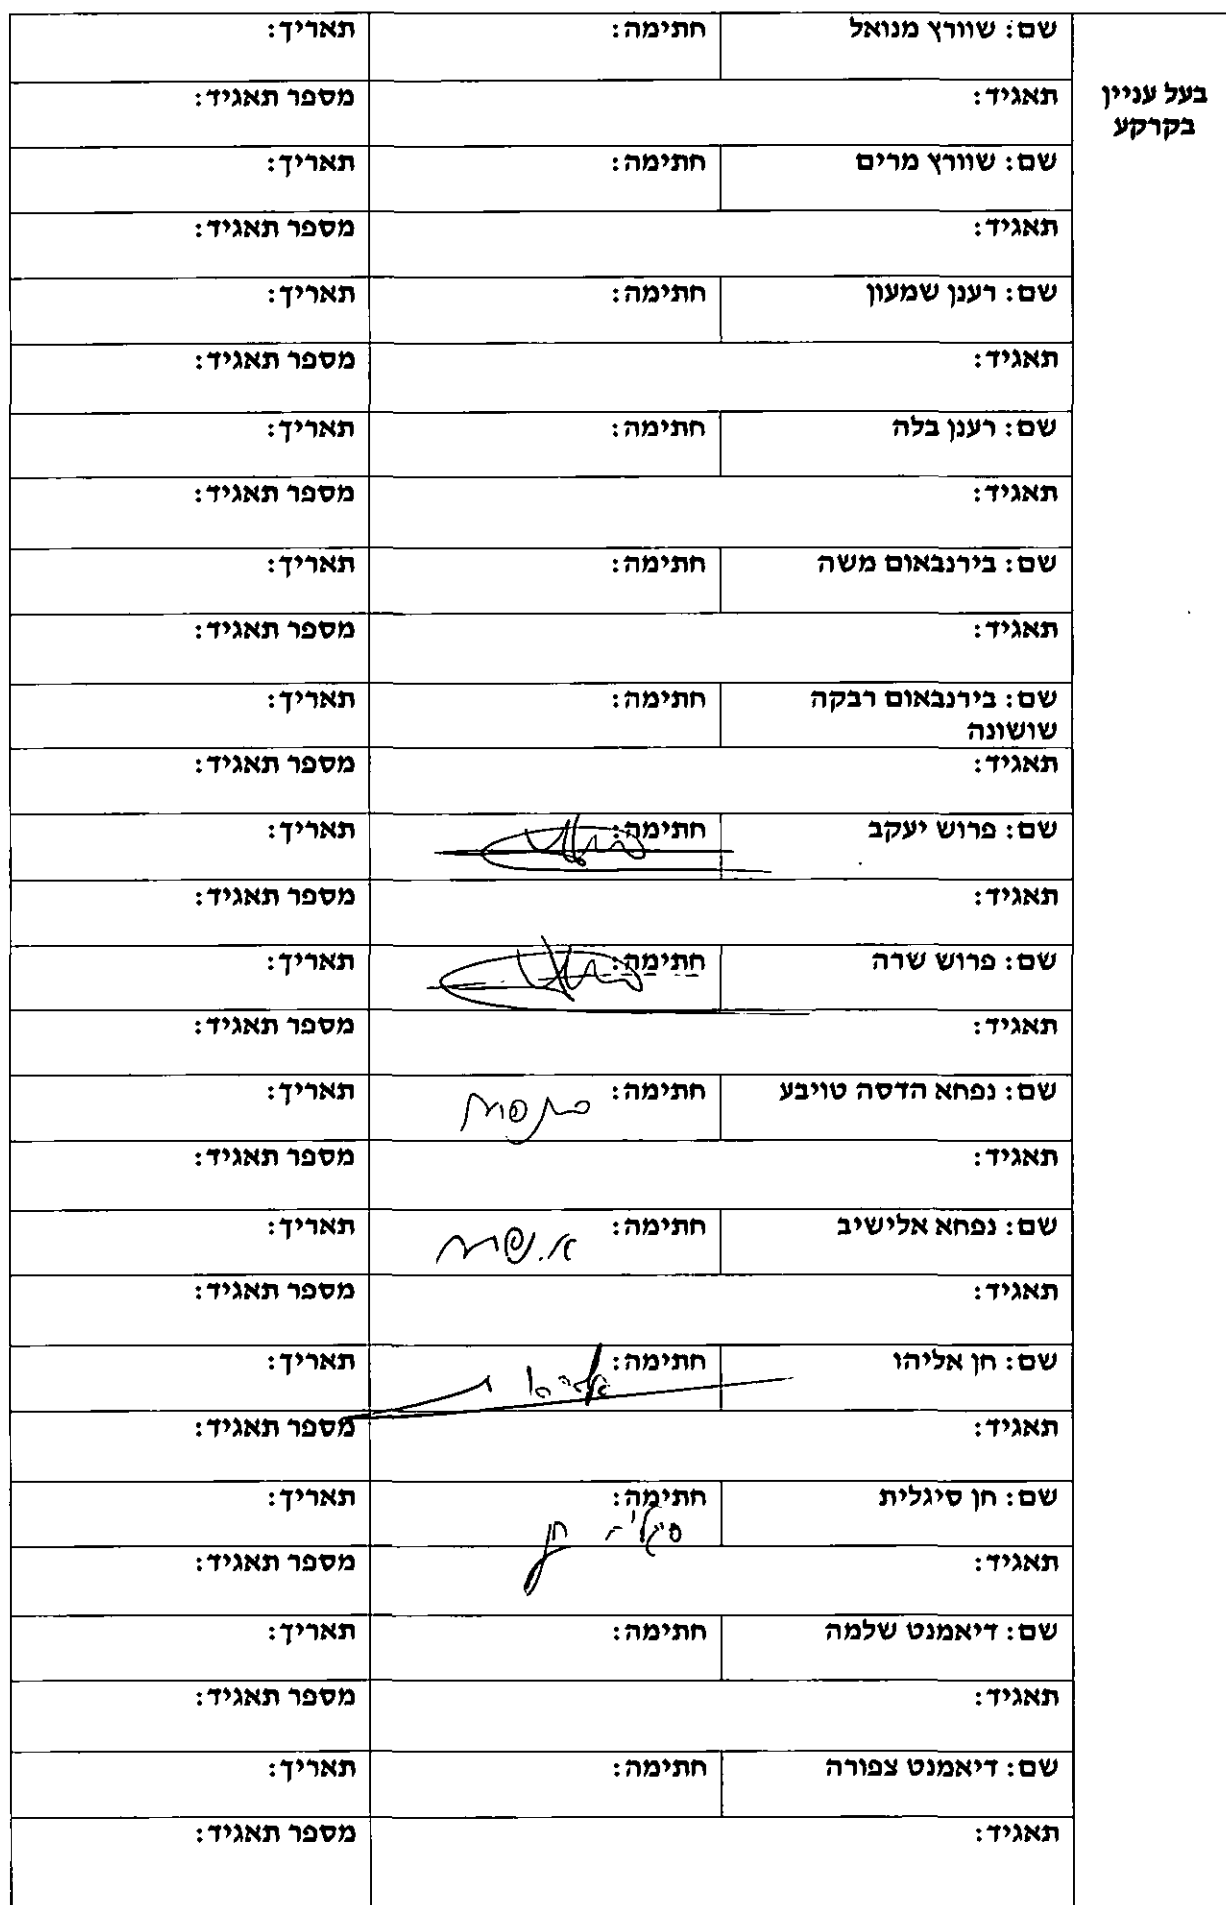 בעל עניין
בקרקע
שם: שוורץ מנואל חתימה: תאריך:
תאגיד: מספר תאגיד:
שם: שוורץ מרים חתימה: תאריך:
תאגיד: מספר תאגיד:
שם: רענן שמעון חתימה: תאריך:
תאגיד: מספר תאגיד:
שם: רענן בלה חתימה: תאריך:
תאגיד: מספר תאגיד:
שם: בירנבאום משה חתימה: תאריך:
תאגיד: מספר תאגיד:
שם: בירנבאום רבקה חתימה: תאריך:
שושונה
תאגיד: מספר תאגיד:
שם: פרוש יעקב חתימה: תאריך:
תאגיד: מספר תאגיד:
שם: פרוש שרה חתימה: תאריך:
תאגיד: מספר תאגיד:
שם: נפחא הדסה טויבע חתימה: תאריך:
תאגיד: מספר תאגיד:
שם: נפחא אלישיב חתימה: א. נפחא תאריך:
תאגיד: מספר תאגיד:
שם: חן אליהו חתימה: תאריך:
תאגיד: מספר תאגיד:
שם: חן סיגלית חתימה: תאריך:
סיגלית חן
תאגיד: מספר תאגיד:
שם: דיאמנט שלמה חתימה: תאריך:
תאגיד: מספר תאגיד:
שם: דיאמנט צפורה חתימה: תאריך:
תאגיד: מספר תאגיד: